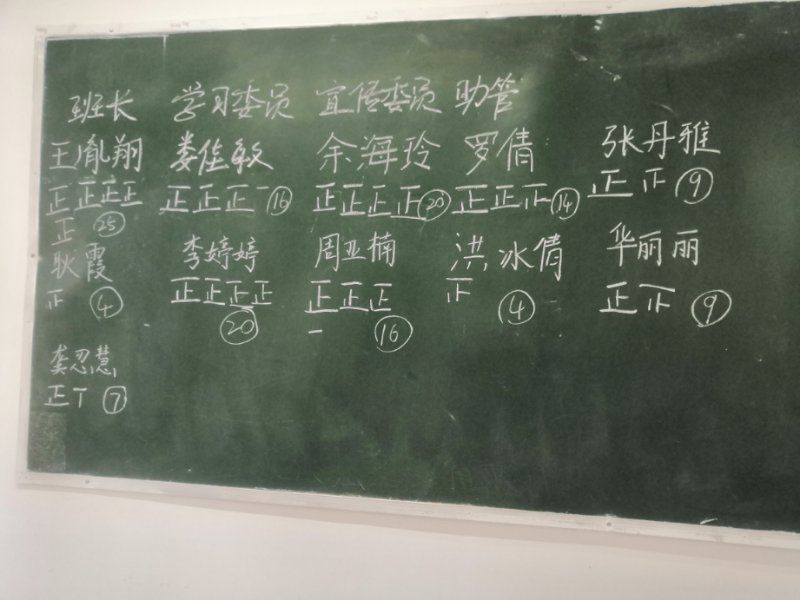 班长 学习委员 宣传委员 助管
王胤翔 娄佳敏 余海玲 罗倩 张丹雅
正正正正 正正正一 16 正正正正 20 正正正 14 正正 9
正 25
耿霞 李婷婷 周亚楠 洪冰倩 华丽丽
正 4 正正正正 20 正正正 正 4 正正 9
一 16
龚忍慧
正丅 7